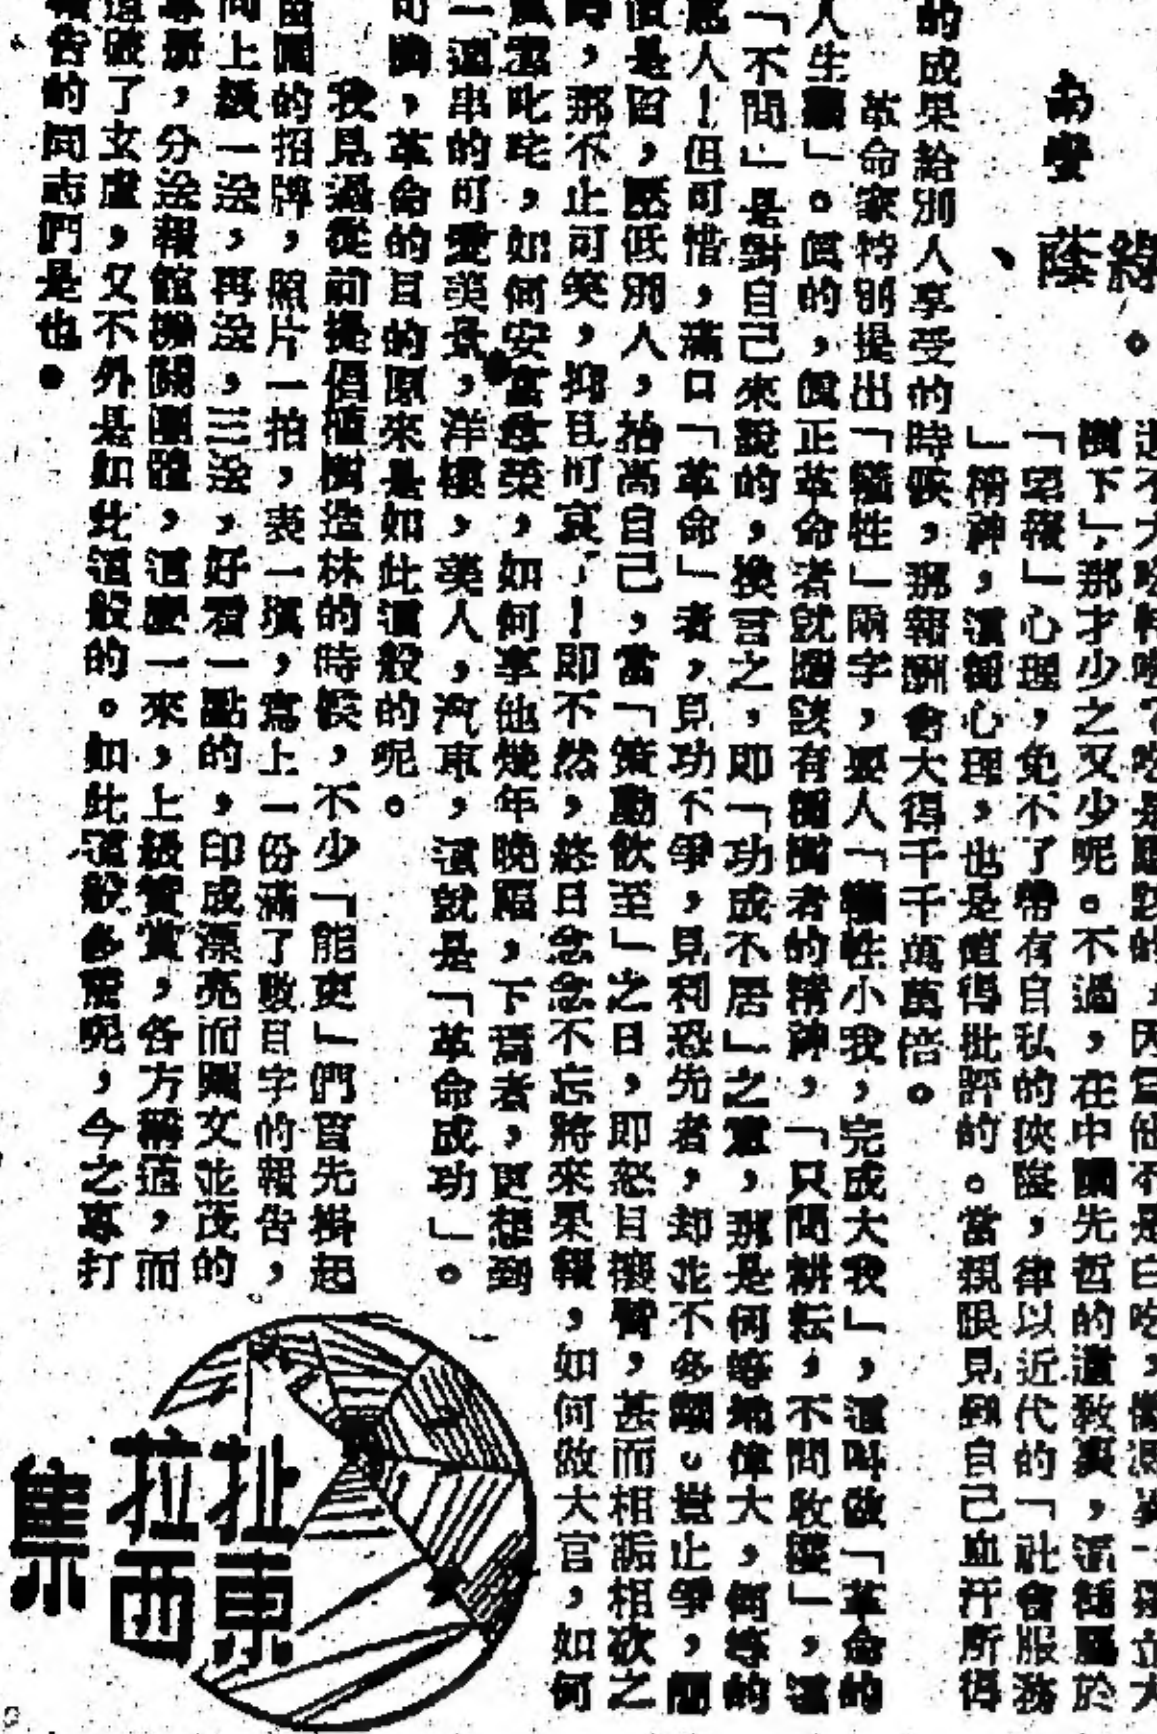 綠
蔭
南安
樹下」，那才少之又少呢。不過，在中國先哲的遺敎裏，這種屬於
「果報」心理，免不了帶有自私的狹隘，律以近代的「社會服務
」精神，這種心理，也是値得批評的。當親眼見到自己血汗所得
的成果給別人享受的時候，那報酬會大得千千萬萬倍。
革命家特別提出「犧牲」兩字，要人「犧牲小我，完成大我」，這叫做「革命的
人生觀」。眞的，眞正革命者就應該有種樹者的精神，「只問耕耘，不問收穫」，這
「不問」是對自己來說的，換言之，即「功成不居」之意，那是何等地偉大，何等的
人！但可惜，滿口「革命」者，見功不爭，見利恐先者，却並不多覩。豈止爭，
是固，壓低別人，抬高自己，當「策勳飲至」之日，即怒目攘臂，甚而相詬相砍之
時，那不止可笑，抑且可哀！即不然，終日念念不忘將來果報，如何做大官，如何
叱咤，如何安富尊榮，如何享他幾年晚福，下焉者，更想到
一連串的可愛美景，洋樓，美人，汽車，這就是「革命成功」。
可憐，革命的目的原來是如此這般的呢。
我見過從前提倡植樹造林的時候，不少「能吏」們首先掛起
的招牌，照片一拍，表一塡，寫上一份滿了數目字的報告，
向上級一送，再送，三送，好看一點的，印成漂亮而圖文並茂的
專册，分送報館機關團體，這麼一來，上級獎賞，各方稱道，而
了玄虛，又不外是如此這般的。如此這般多着呢，今之專打
報告的同志們是也。
扯東
拉西
集